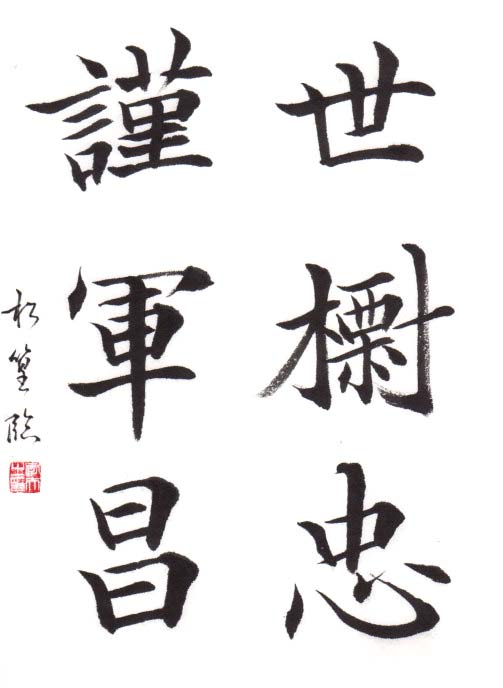 世樹忠
謹軍昌
松篁臨